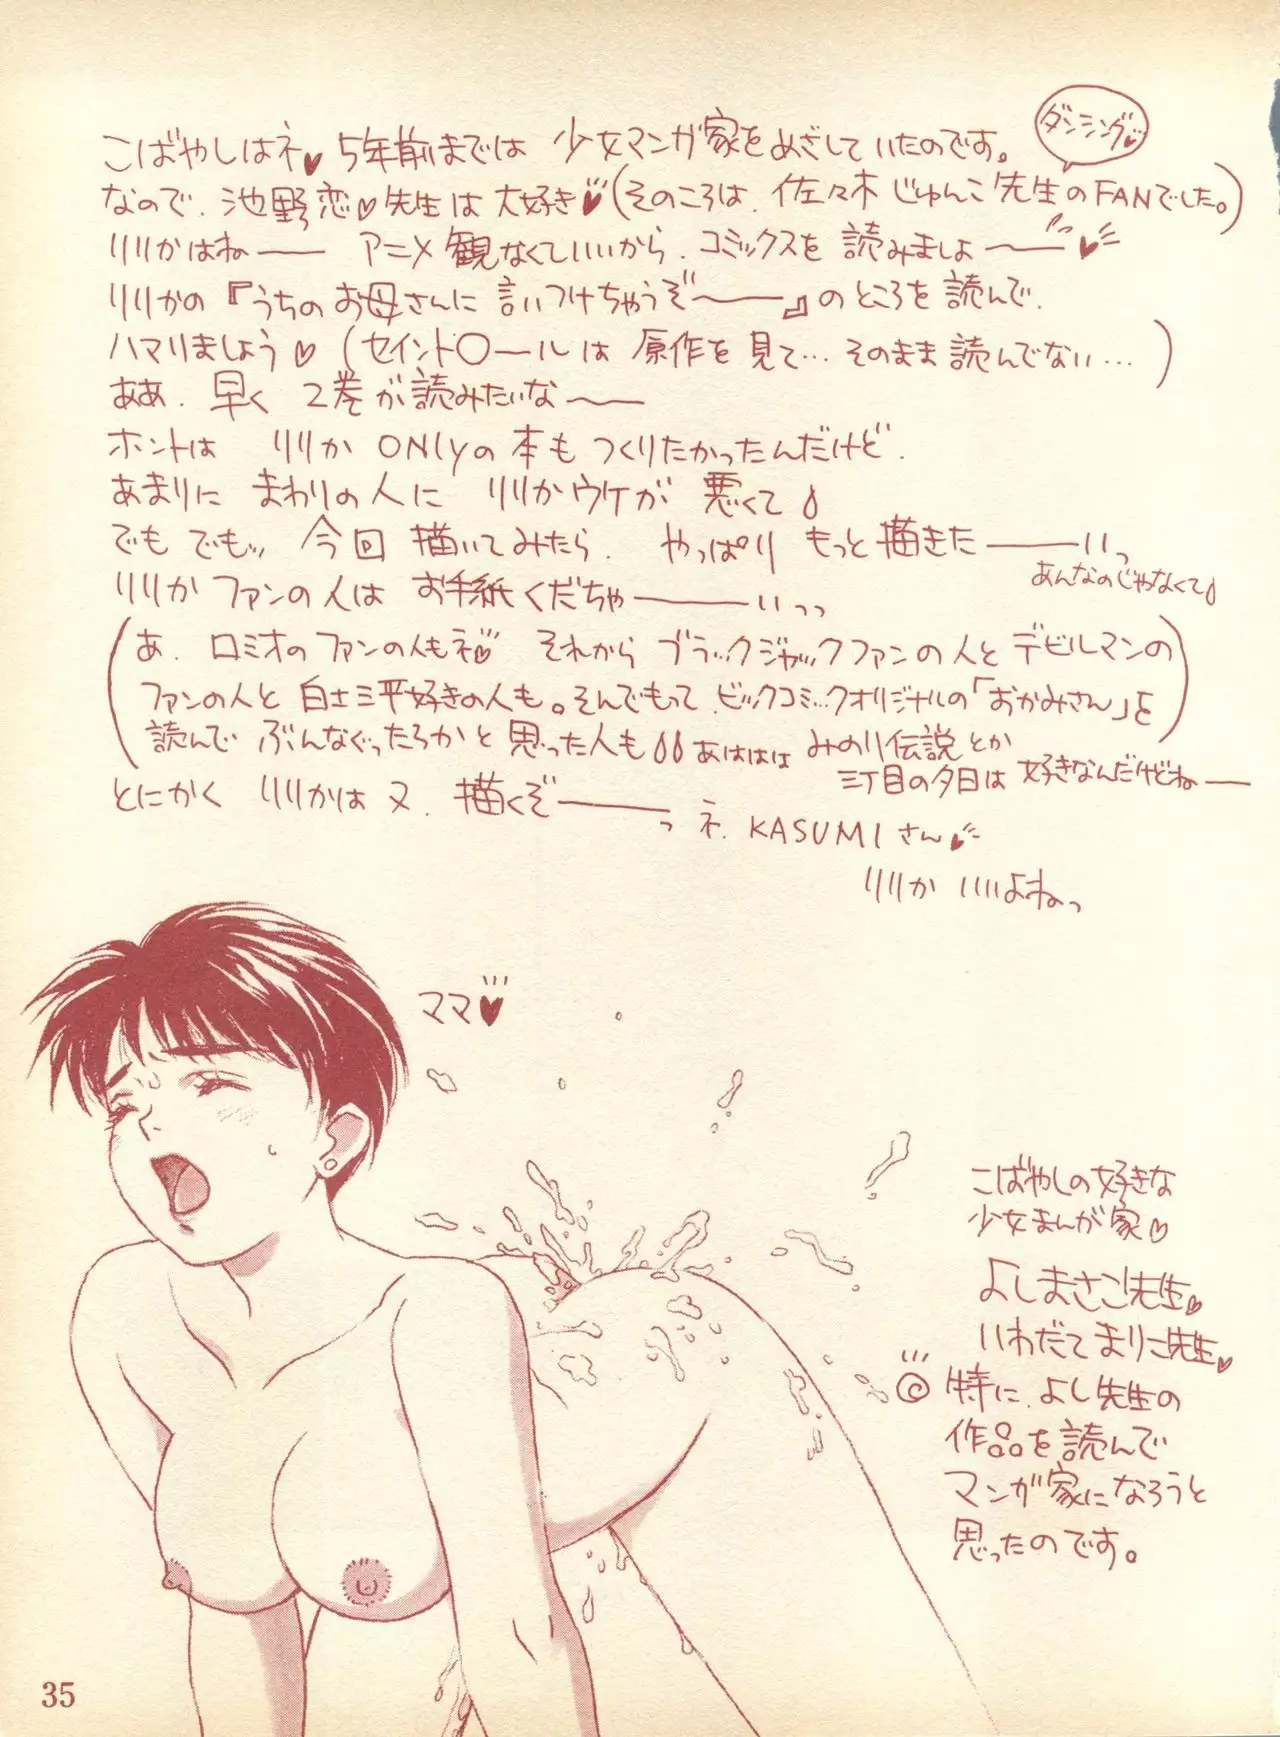 ダンシング♥
こばやしはネ♥ 5年前までは 少女マンガ家をめざしていたのです。
なので、池野恋♡先生は大好き♥(そのころは、佐々木じゅんこ先生のFANでした。)
リリかはねー アニメ観なくていいから、コミックスを読みましょー♥
リリかの『うちのお母さんに言いつけちゃうぞー』のところを読んで、
ハマりましょう♡(セイント〇ールは原作を見て…そのまま読んでない…)
ああ、早く2巻が読みたいなー
ホントは リリか ONlyの本もつくりたかったんだけど、
あまりに まわりの人に リリかウケが悪くて
でもでもッ 今回描いてみたら、やっぱり もっと描きたーいっ
あんなのじゃなくて
リリかファンの人は お手紙くだちゃーいっっ
(あ、ロミオのファンの人もネ♡ それから ブラックジャックファンの人とデビルマンの
ファンの人と白土三平好きの人も。そんでもって、ビックコミックオリジナルの「おかみさん」を
読んで ぶんなぐったろかと思った人も あははは みのり伝説とか
三丁目の夕日は好きなんだけどねー
とにかく リリかは又、描くぞーっ ネ、KASUMIさん♥
リリか いいよねっ
ママ♥
こばやしの好きな
少女まんが家♡
よしまさこ先生♡
いわだてまりこ先生♥
特に、よし先生の
作品を読んで
マンガ家になろうと
思ったのです。
35